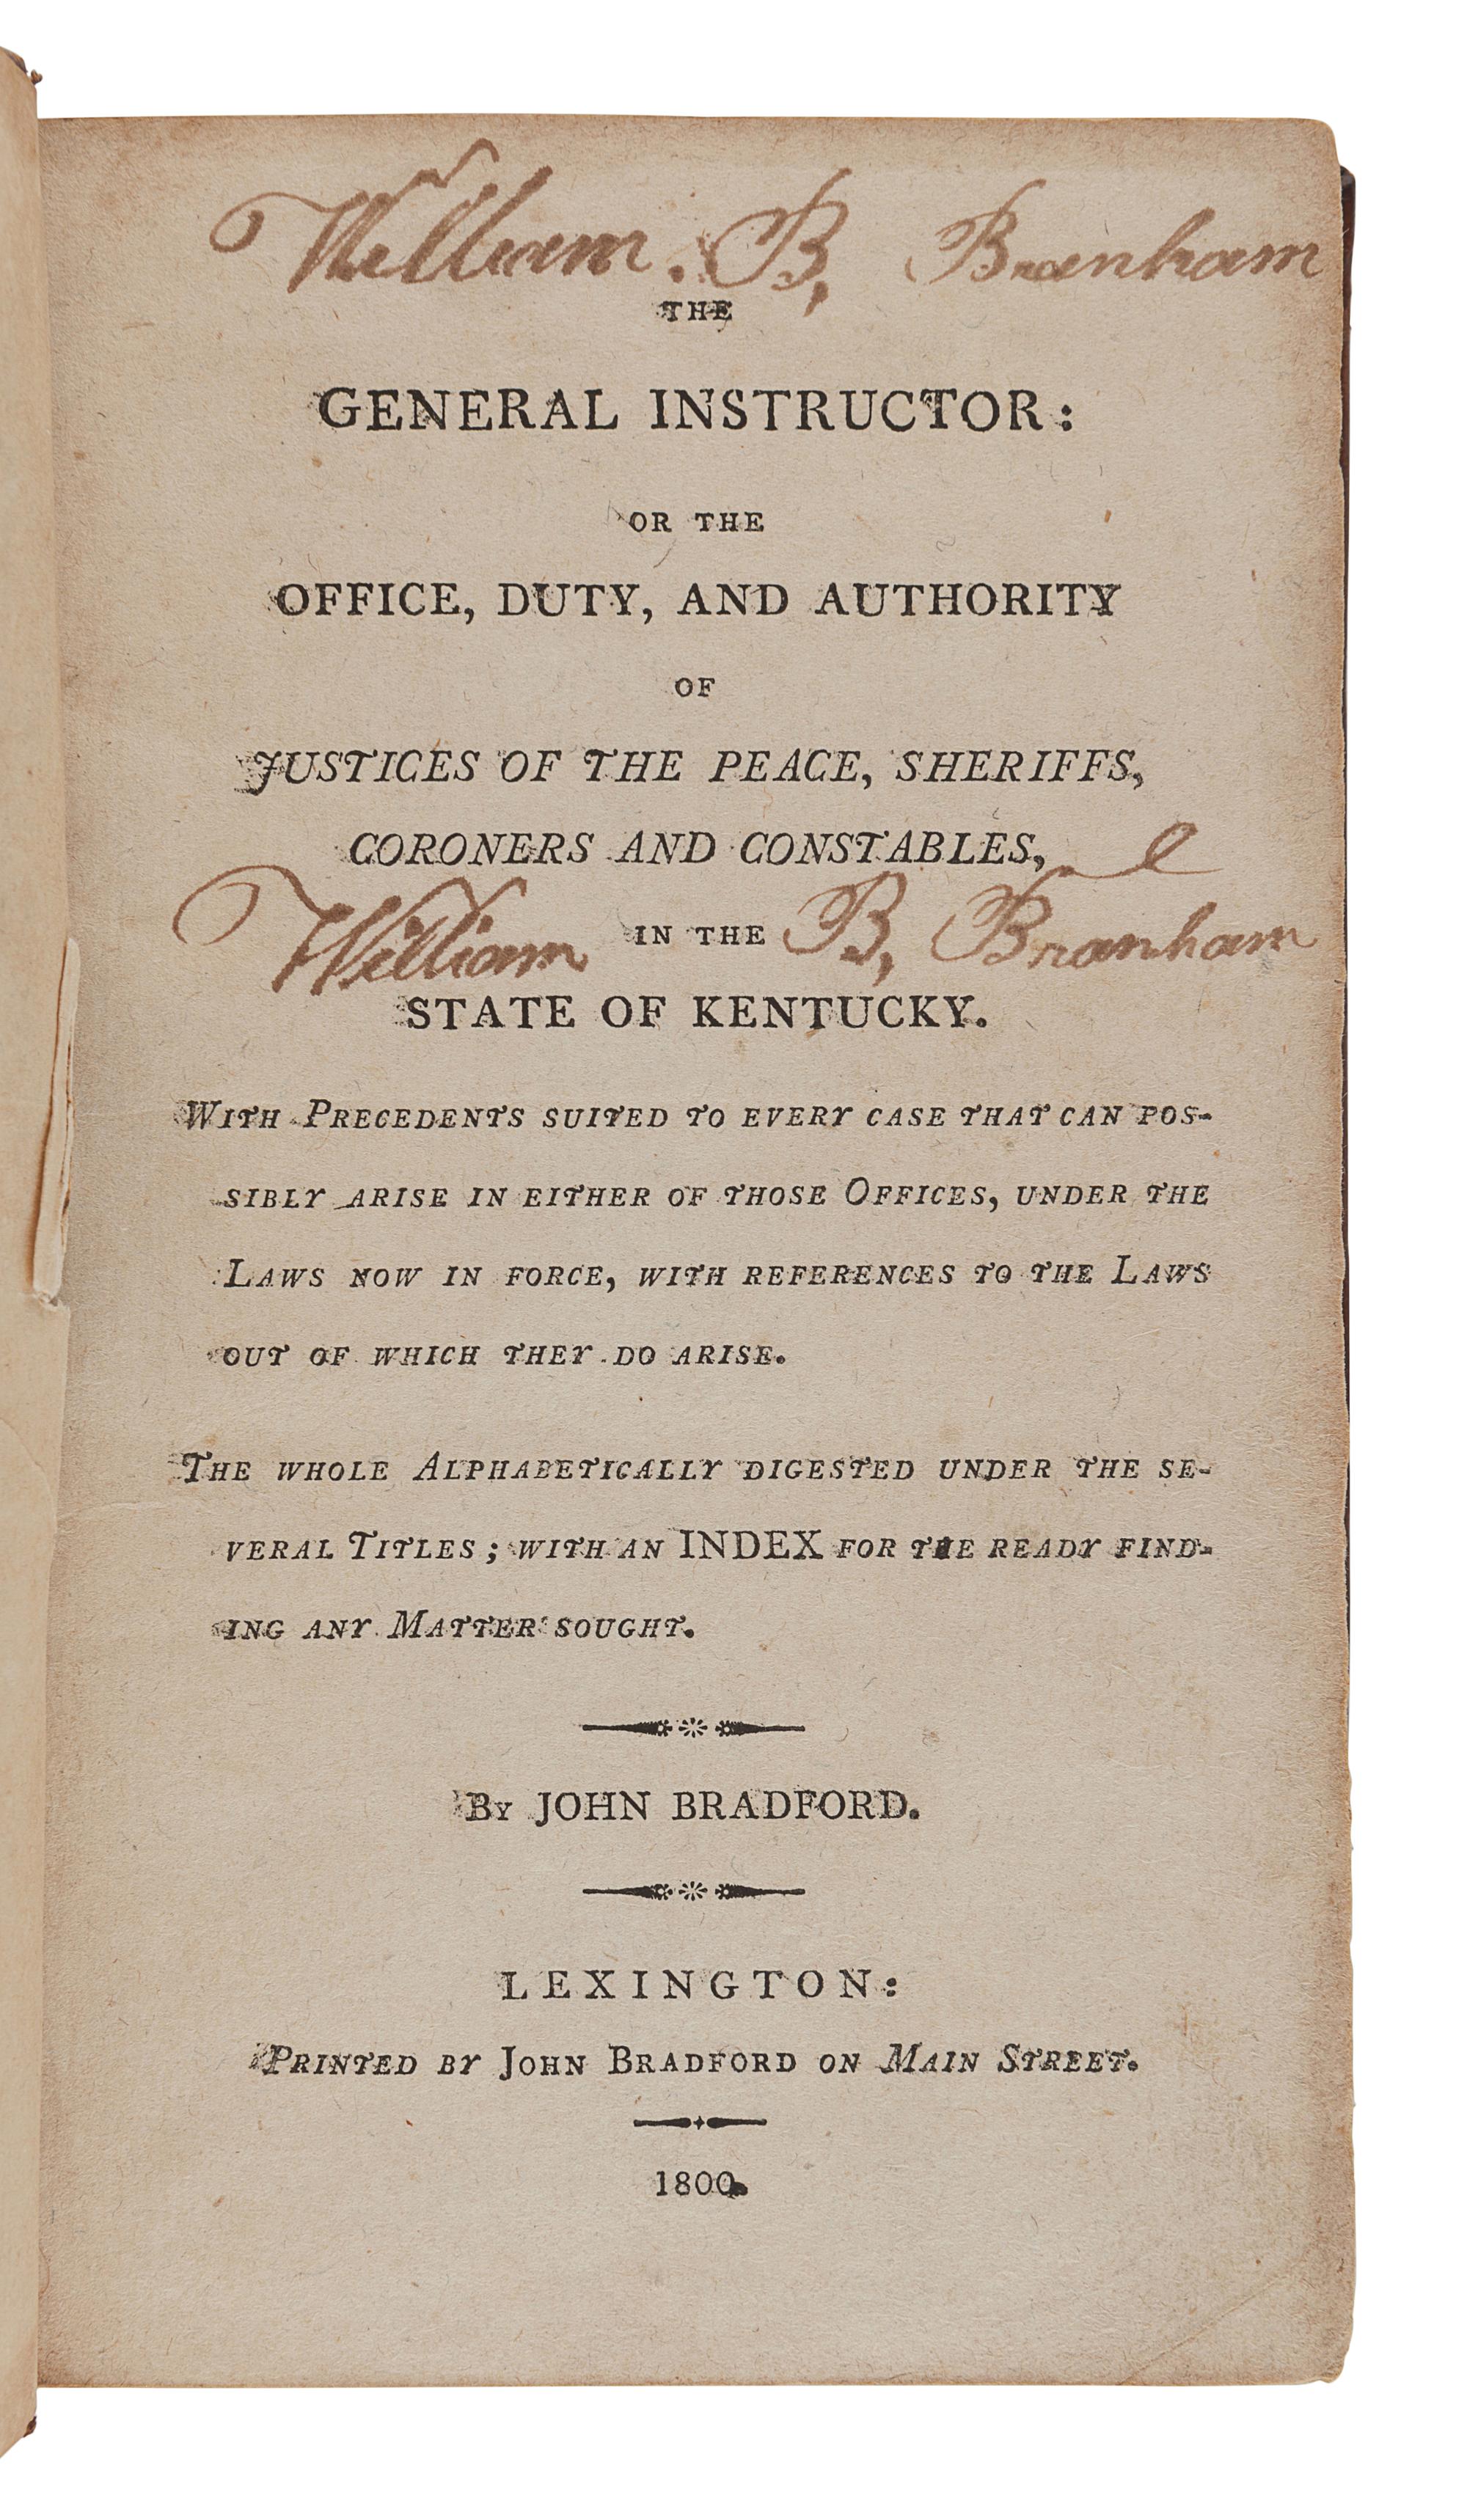 William. B, Branham
THE
GENERAL INSTRUCTOR:
OR THE
OFFICE, DUTY, AND AUTHORITY
OF
JUSTICES OF THE PEACE, SHERIFFS,
CORONERS AND CONSTABLES,
William B, Branham
IN THE
STATE OF KENTUCKY.
WITH PRECEDENTS SUITED TO EVERY CASE THAT CAN POS-
SIBLY ARISE IN EITHER OF THOSE OFFICES, UNDER THE
LAWS NOW IN FORCE, WITH REFERENCES TO THE LAWS
OUT OF WHICH THEY DO ARISE.
THE WHOLE ALPHABETICALLY DIGESTED UNDER THE SE-
VERAL TITLES; WITH AN INDEX FOR THE READY FIND-
ING ANY MATTER SOUGHT.
By JOHN BRADFORD.
LEXINGTON:
PRINTED BY JOHN BRADFORD ON MAIN STREET.
1800.